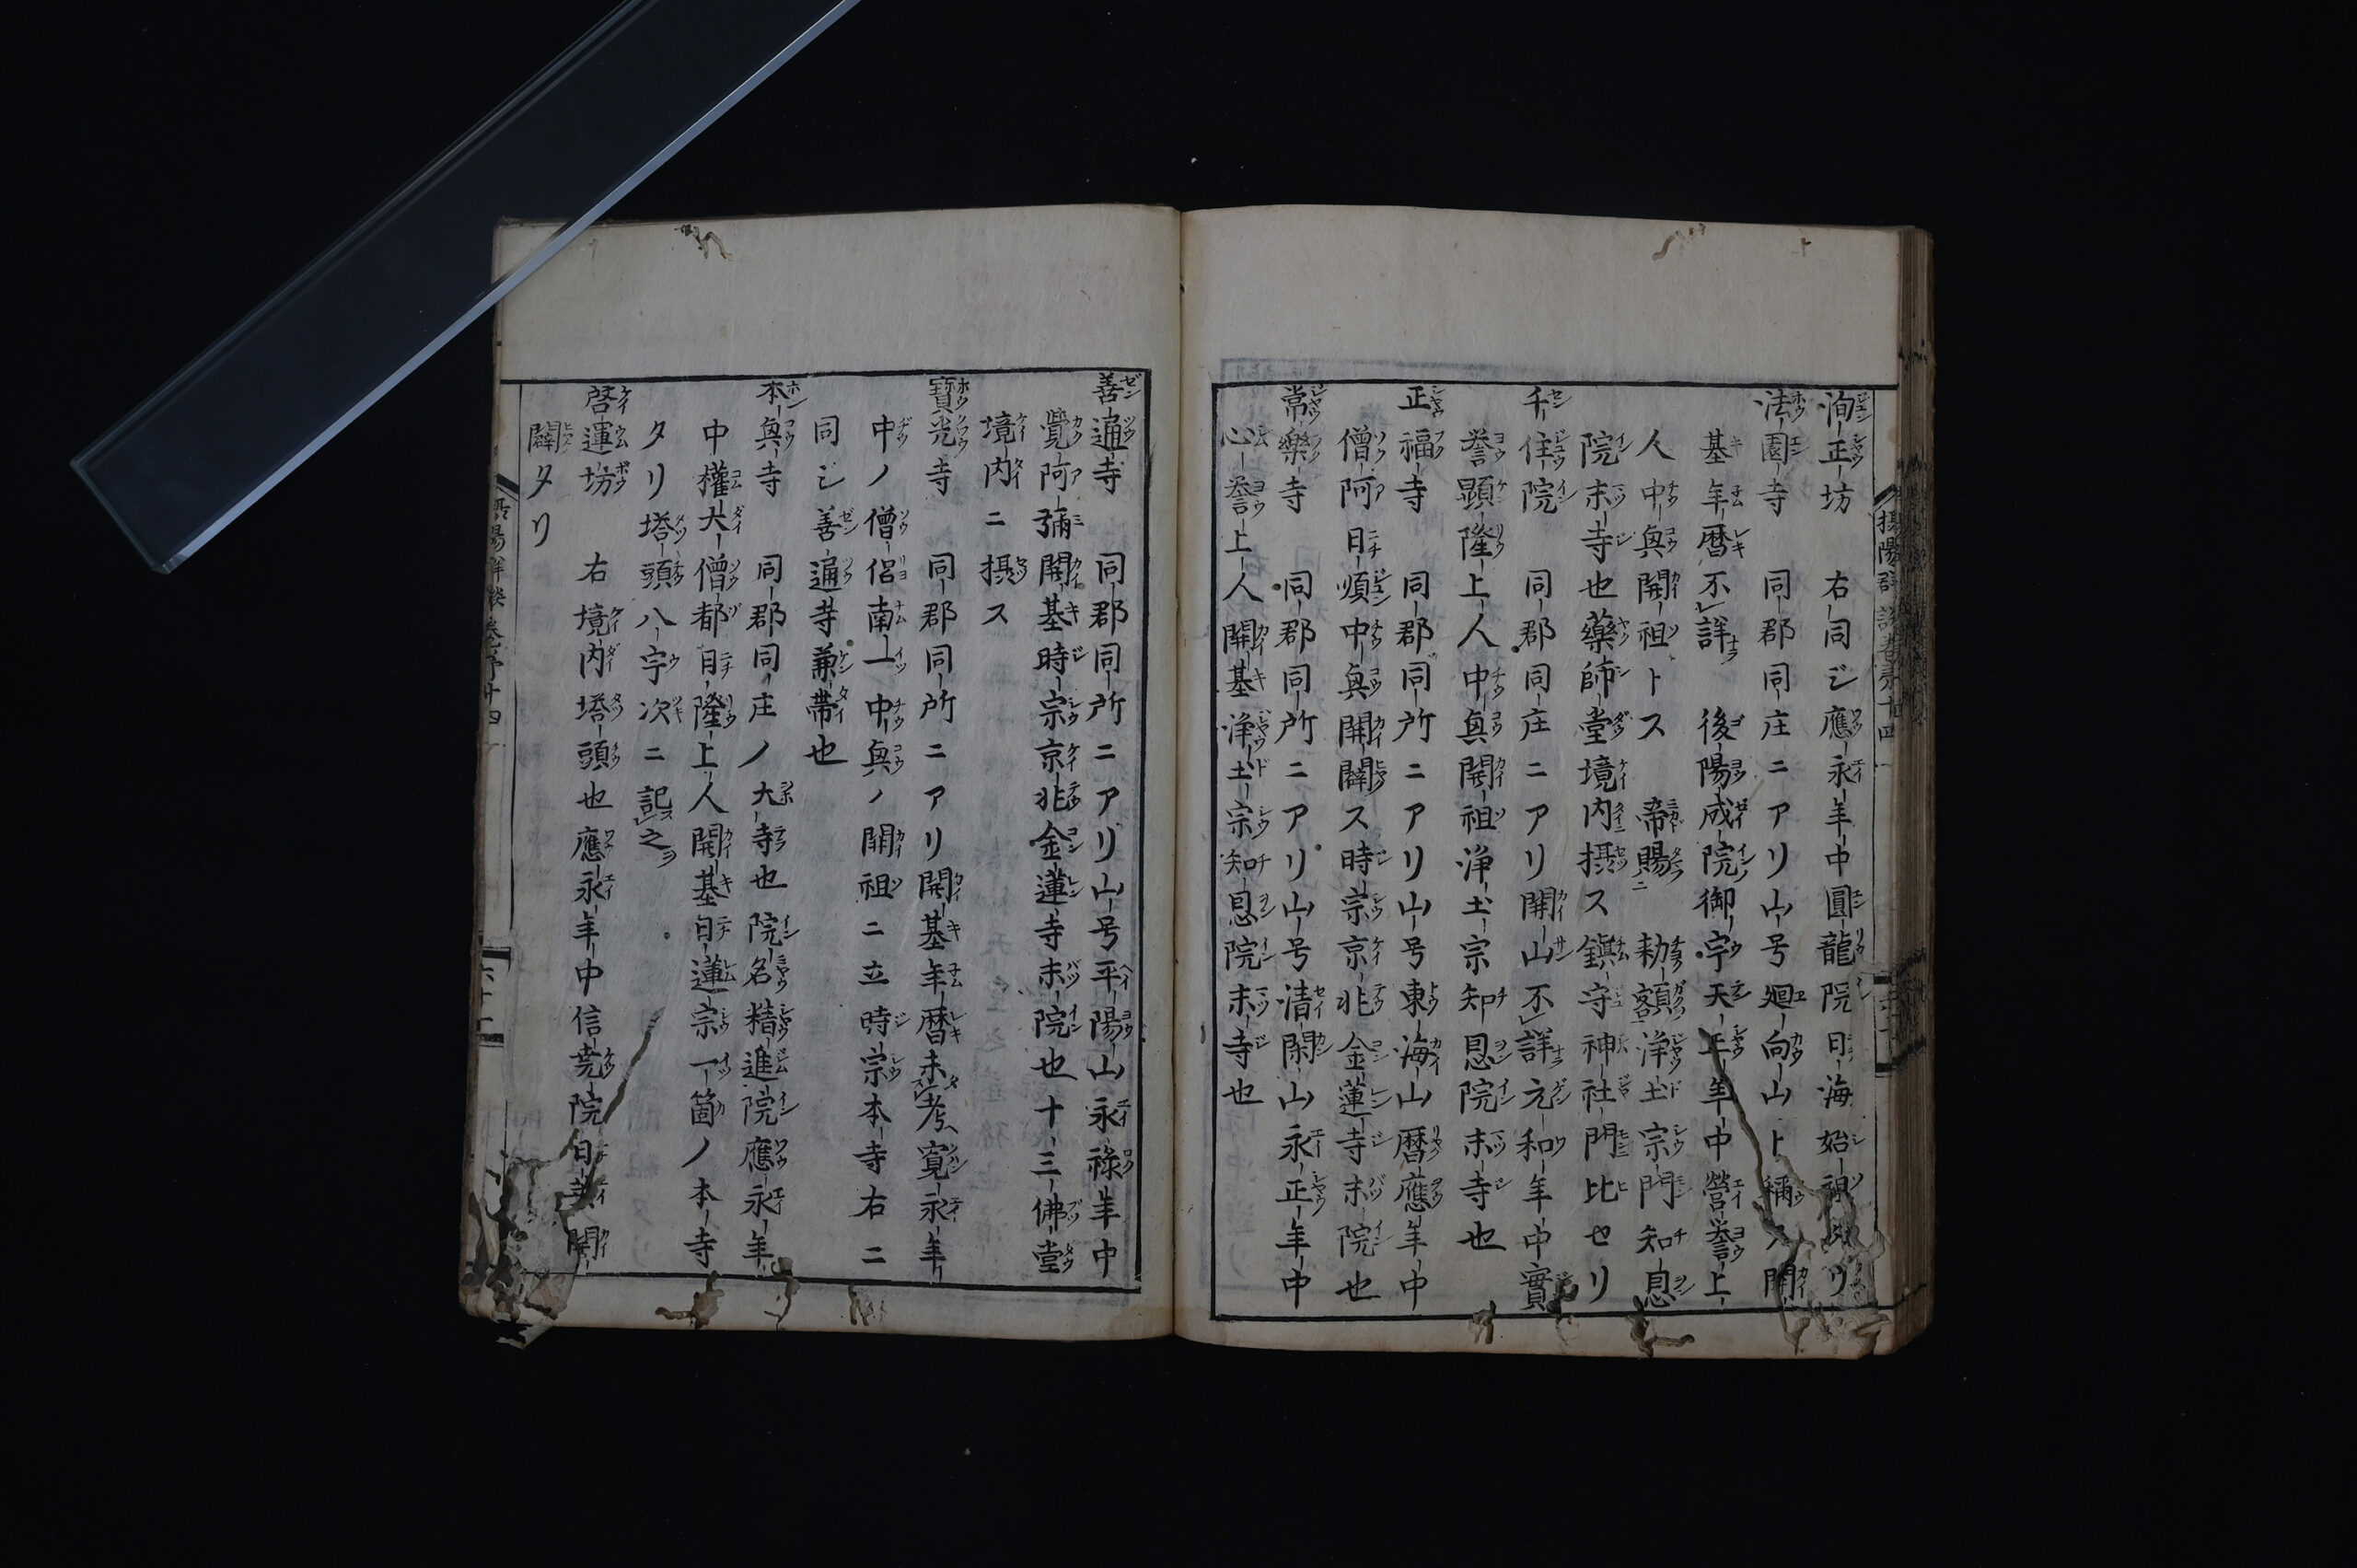 洵正坊 右同シ應永年中圓龍院日海始祖タリ
法園寺 同郡同庄ニアリ山号廻向山ト稱ス開
基年暦不詳 後陽成院御宇天正年中營誉上
人中興開祖トス 帝賜勅額浄土宗門知恩
院末寺也藥師堂境内摂ス鎮守神社門比セリ
千住院 同郡同庄ニアリ開山不詳元和年中實
誉顕隆上人中興開祖浄土宗知恩院末寺也
正福寺 同郡同所ニアリ山号東海山暦應年中
僧阿日順中興開闢ス時宗京兆金蓮寺末院也
常樂寺 同郡同所ニアリ山号清閑山永正年中
心誉上人開基浄土宗知恩院末寺也
善通寺 同郡同所ニアリ山号平陽山永祿年中
覺阿彌開基時宗京兆金蓮寺末院也十三佛堂
境内ニ摂ス
寶光寺 同郡同所ニアリ開基年暦未考寛永年
中ノ僧侶南一中興ノ開祖ニ立時宗本寺右ニ
同シ善通寺兼帯也
本興寺 同郡同庄ノ大寺也院名精進院應永年
中權大僧都日隆上人開基日蓮宗一箇ノ本寺
タリ塔頭八宇次ニ記之
啓運坊 右境内塔頭也應永年中信尭院日 開
闢タリ
摂陽群談巻第十四